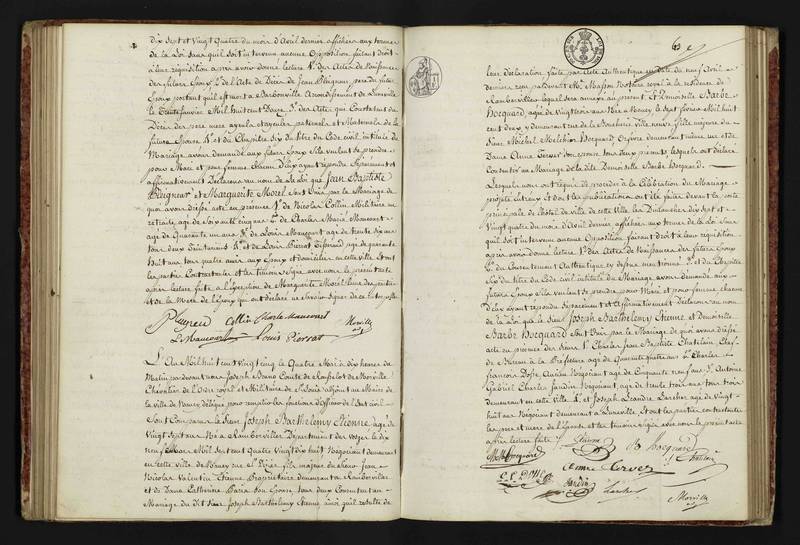 dix Sept et Vingt Quatre du mois d'Avril dernier affichées aux termes
de la Loi sans qu'il soit intervenu aucune Opposition faisant droit
à leur réquisition après avoir donné lecture 1° des Actes de Naissance
des futurs Epoux 2° de l'Acte de Décès de Jean Plugneur père du futur
Epoux portant qu'il est mort à Barbonville Arrondissement de Lunéville
le Mil huit cent Douze 3° des Actes qui Constatent du
Décès des père mère ayeuls et ayeules paternels et Maternels de la
future Epouse 4° et du Chapitre Six du titre du Code civil intitulé du
Mariage avons demandé aux futurs Epoux s'ils veulent se prendre
pour Mari et pour femme Chacun D'eux ayant répondu Séparément et
affirmativement Déclarons au nom de la Loi que Jean Baptiste
Plugneur et Marguerite Morel Sont Unis par le Mariage de
quoi avons dressé acte en présence 1° de Nicolas Collin Militaire en
retraite, agé de Soixante cinq ans 2° de Charles Marie Maucourt
agé de Quarante un ans 3° de Louis Maucourt agé de trente Six ans
tous deux 4° et de Louis Pierrat agé de quarante
huit ans tous quatre amis aux Epoux et domiciliés en cette Ville et ont
les parties Contractantes et les témoins signé avec nous le présent acte
après lecture faite à l'exception de Marguerite Morel
et de la Mère de l'Epoux qui ont déclaré ne Savoir Signer de ce interpellées
Plugneur Collin Charle Maucourt
L. Maucourt Louis Pierrat Morville
L'An Mil huit cent Vingt cinq le Quatre Mai à dix heures du
Matin pardevant nous Joseph Bruno Comte de Morville
Chevalier de l'Ordre royal et Militaire de St Louis adjoint au Maire de
la ville de Nancy délégué pour remplir les fonctions d'Officier de l'Etat civil
Sont Comparus le Sieur Joseph Barthelemy Etienne agé de
Vingt Sept ans Né à Rambervillers Département des Vosges le dix
neuf Mil Sept cent Quatre Vingt dix huit Négociant demeurant
en cette ville de Nancy fils majeur du Sieur Jean
Nicolas Valentin Etienne Propriétaire demeurant à Rambervillers
et de Dame Catherine Barbe son Epouse, tous deux Consentant au
Mariage du dit Sieur Joseph Barthelemy Etienne ainsi qu'il résulte de
leur déclaration faite par Acte Authentique en date du neuf Avril
dernier reçu pardevant Me Masson Notaire royal à la résidence de
Rambervillers lequel sera annexé au présent Et Demoiselle Barbe
Hocquard, agée de Vingt trois ans Née à Nancy le Sept février Mil huit
cent deux y demeurant rue de la Boucherie Ville neuve fille majeure du
Sieur Michel Melchior Hocquard, Orfèvre demeurant même rue et de
Dame Anne Server son épouse tous deux présents lesquels ont déclaré
Consentir au Mariage de la dite Demoiselle Barbe Hocquard
Lesquels nous ont requis de procéder à la Célébration du Mariage
projeté entr'eux et dont les publications ont été faites devant la porte
principale de l'hôtel de ville de cette Ville les Dimanches dix sept et
Vingt quatre du mois d'Avril dernier affichées aux termes de la Loi sans
qu'il soit intervenu aucune Opposition faisant droit à leur réquisition
après avoir donné lecture 1° des Actes de Naissance des futurs Epoux
2° du Consentement Authentique ci dessus mentionné 3° et du Chapitre
Six du titre du Code civil intitulé du Mariage avons demandé aux
futurs Epoux s'ils veulent se prendre pour Mari et pour femme chacun
d'eux ayant répondu Séparément et affirmativement Déclarons au nom
de la Loi que le Sieur Joseph Barthelemy Etienne et Demoiselle
Barbe Hocquard Sont Unis par le Mariage de quoi avons dressé
acte en présence des Sieurs 1° Charles Jean Baptiste Chatelain Chef
de Bureau à la Préfecture agé de Quarante Quatre ans 2° Charles
François Négociant agé de Cinquante neuf ans 3° Antoine
Gabriel Charles Jandin Négociant, agé de trente trois ans tous trois
demeurant en cette ville 4° et Joseph Léandre Larcher agé de Vingt
huit ans Négociant demeurant à Lunéville, et ont les parties contractantes
les père et mère de l'épouse et les témoins signé avec nous le présent acte
après lecture faite
Etienne B Hocquard
MM hocquard Anne Server Chatelain
Jandin Larcher Morville